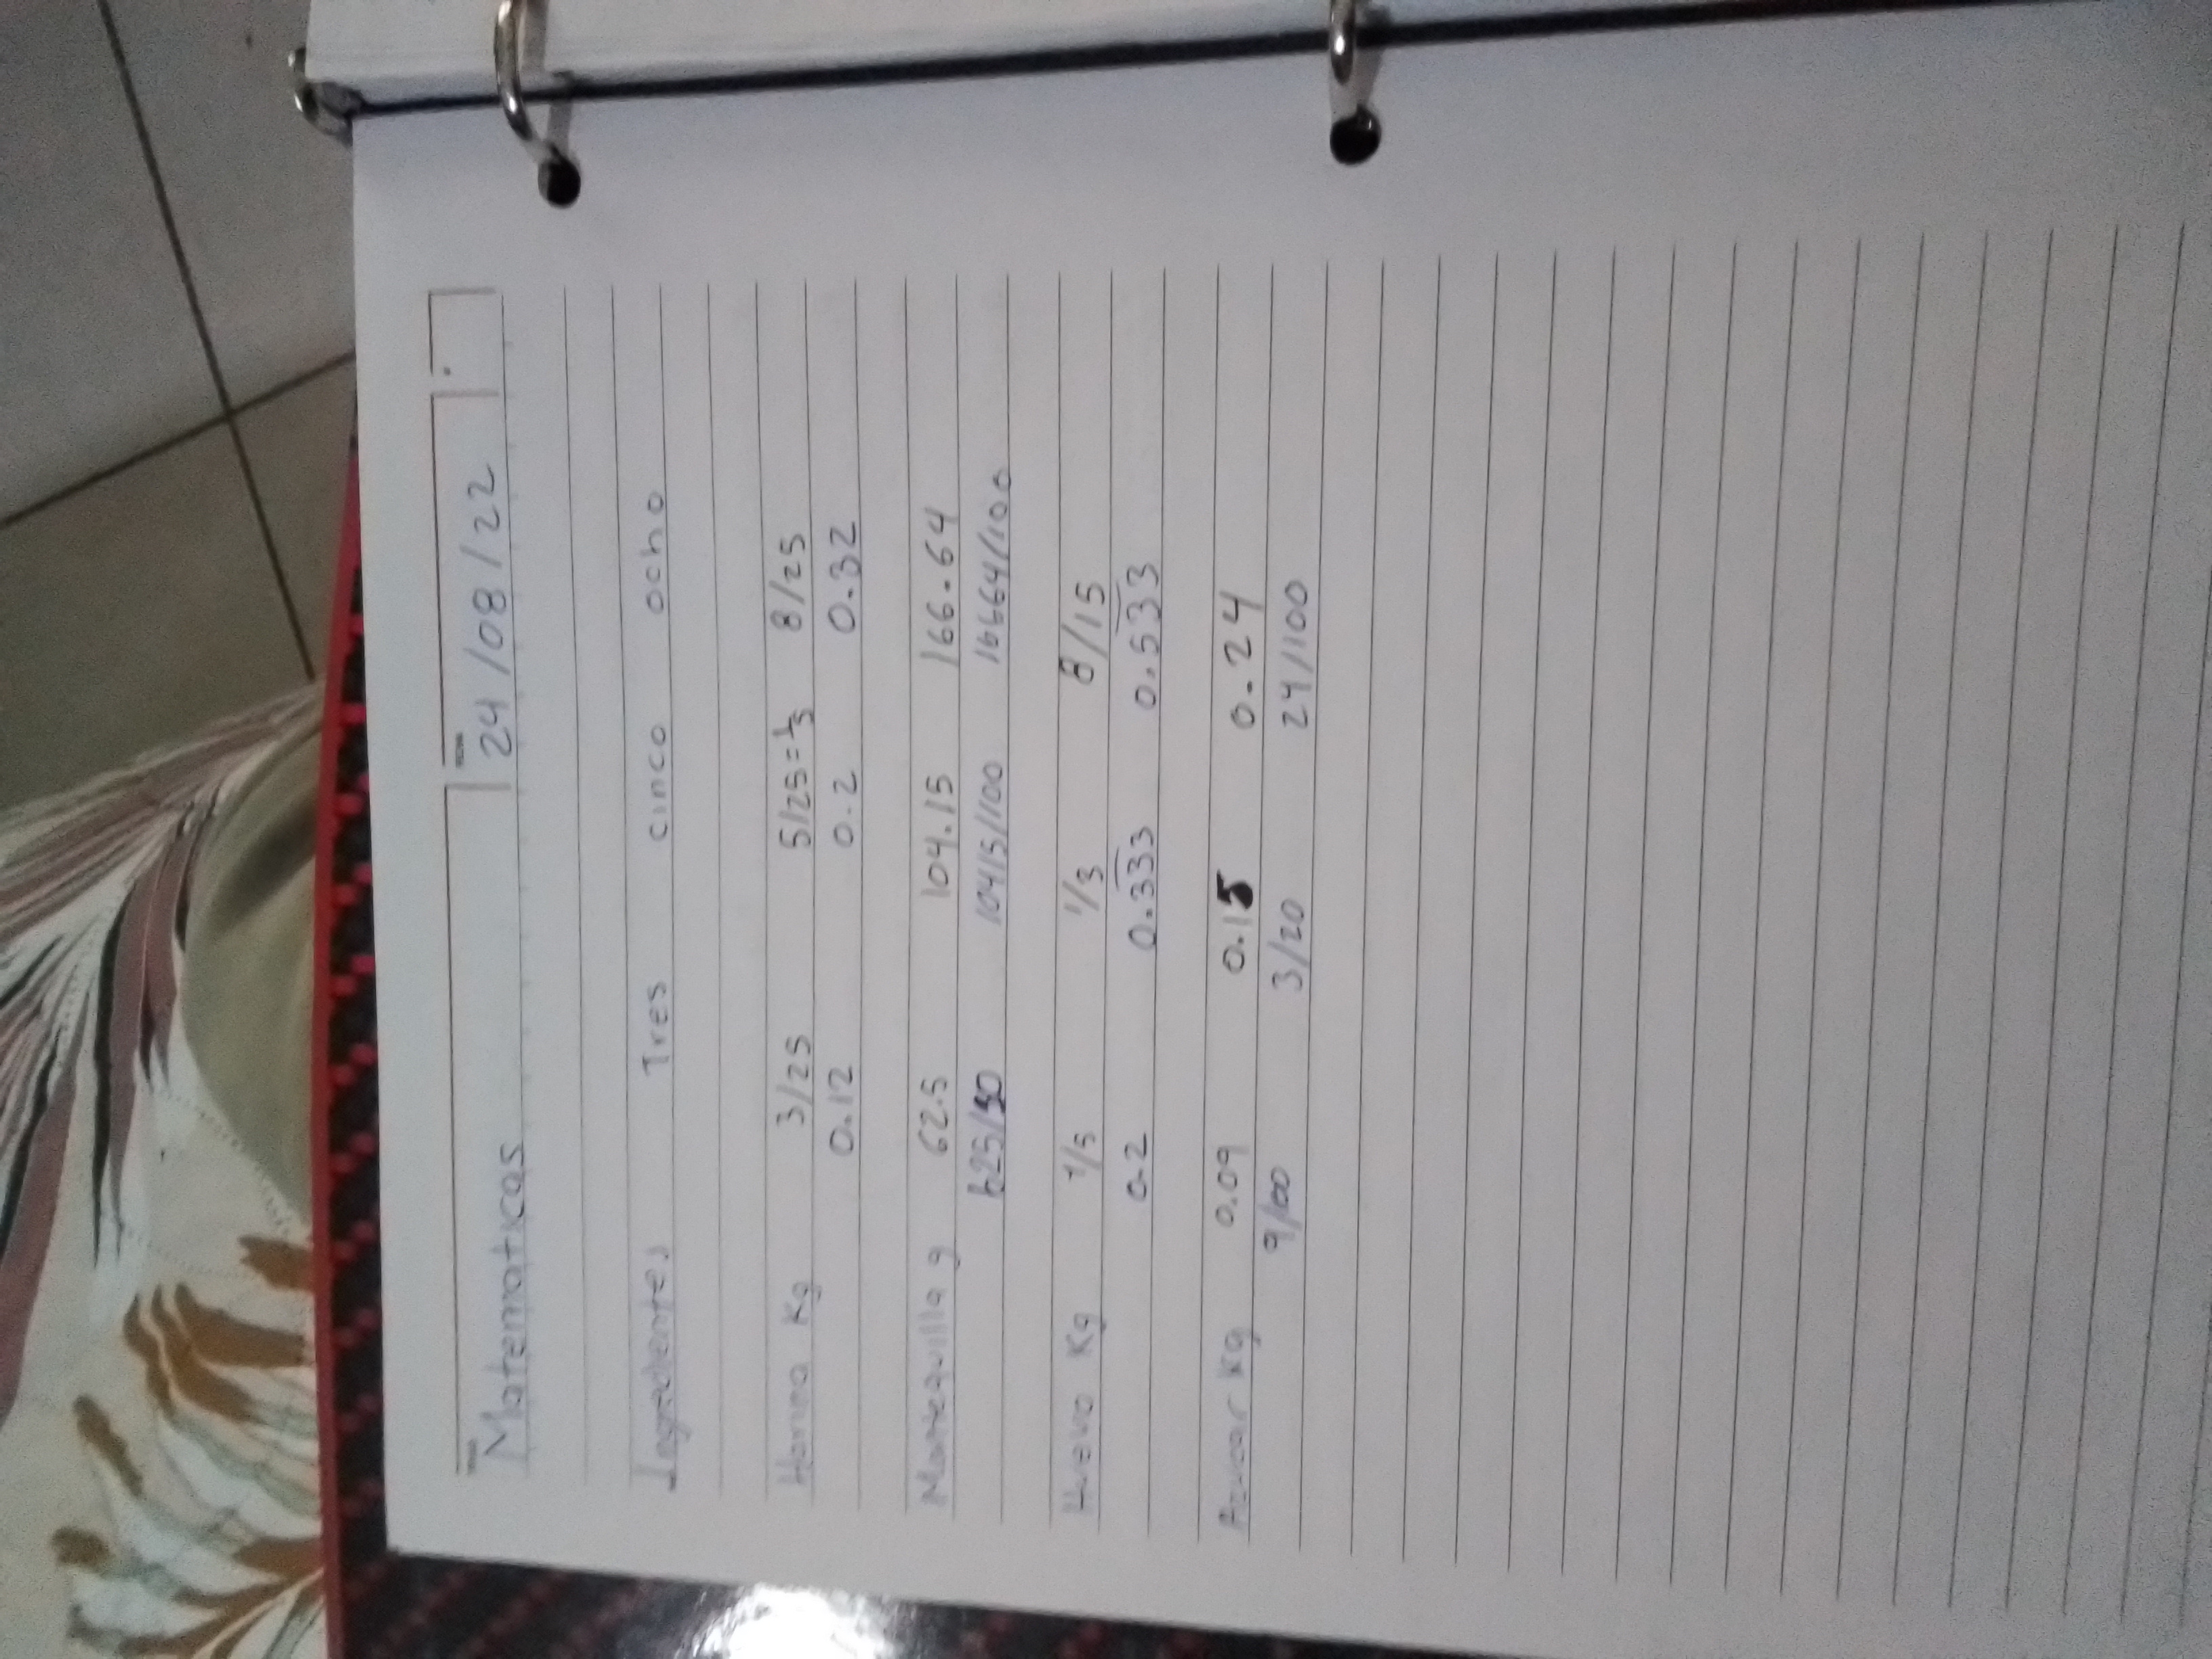 Matematicas 24/08/22
Ingredientes Tres cinco ocho
Harina Kg 3/25 5/25=1/5 8/25
0.12 0.2 0.32
Mantequilla g 62.5 104.15 166.64
625/ 10415/100 16664/100
Huevo Kg 1/5 1/3 8/15
0.2 0.333 0.533
Azucar Kg 0.09 0.15 0.24
9/100 3/20 24/100